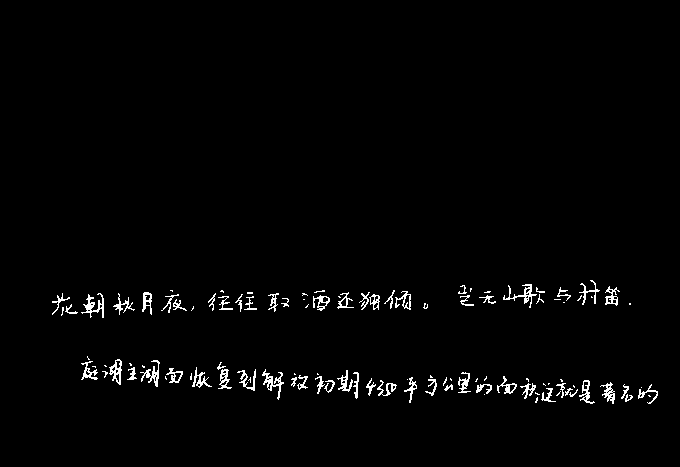 花朝秋月夜，往往取酒还独倾。岂无山歌与村笛．
庭湖主湖面恢复到解放初期4350平方公里的面积这就是著名的